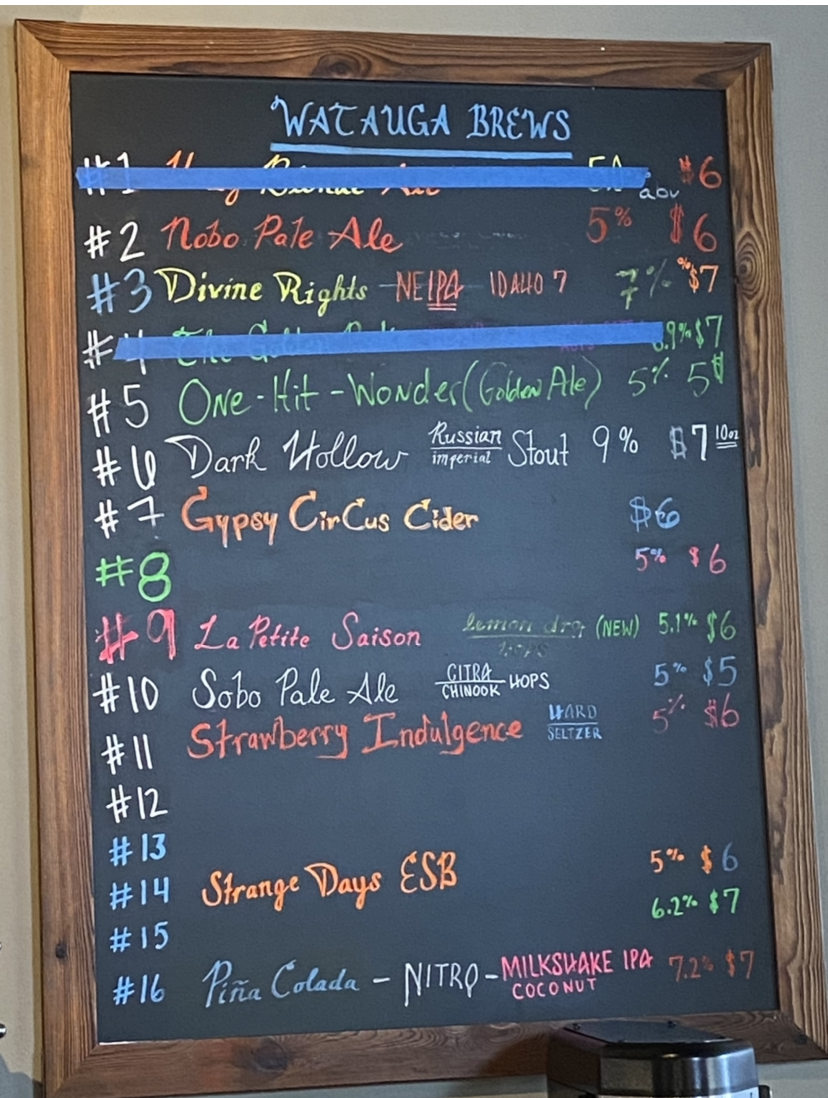 WATAUGA BREWS
#1 abv $6
#2 Nobo Pale Ale 5% $6
#3 Divine Rights - NEIPA IDAHO 7 7% $7
#4 6.9% $7
#5 One-Hit-Wonder (Golden Ale) 5% 5$
#6 Dark Hollow Russian imperial Stout 9% $7 10oz
#7 Gypsy Circus Cider $6
5% $6
#8
#9 La Petite Saison lemon drop (NEW) 5.1% $6
HOPS
#10 Sobo Pale Ale CITRA CHINOOK HOPS 5% $5
#11 Strawberry Indulgence HARD SELTZER 5% $6
#12
#13
#14 Strange Days ESB 5% $6
6.2% $7
#15
#16 Piña Colada - NITRO - MILKSHAKE IPA 7.2% $7
COCONUT